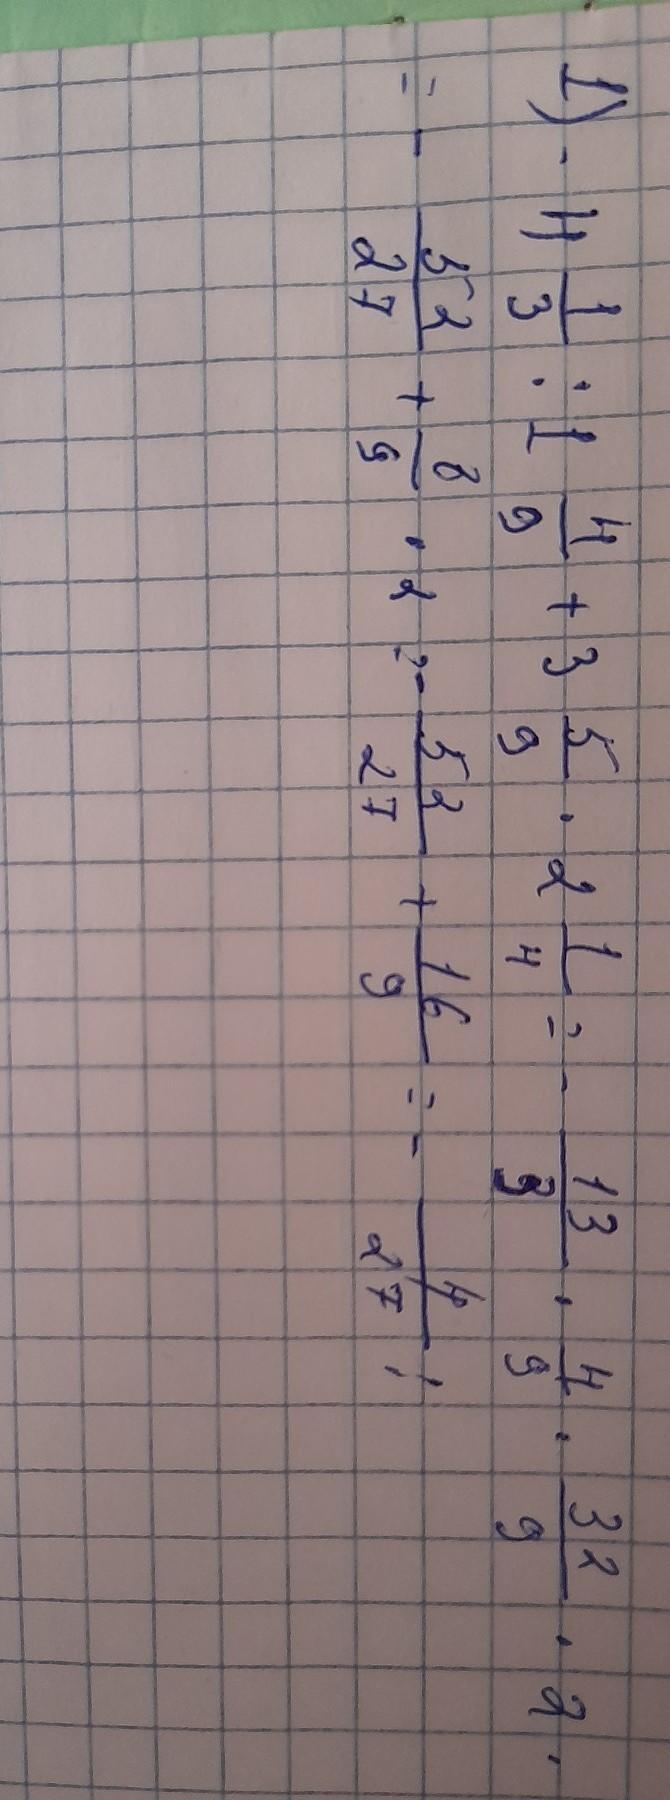 1) - 4 1/3 : 1 4/9 + 3 5/9 · 2 1/4 = - 13/3 · 4/9 · 32/9 · 2 ·
= - 52/27 + 8/9 · 2 = - 52/27 + 16/9 = - 4/27 ;